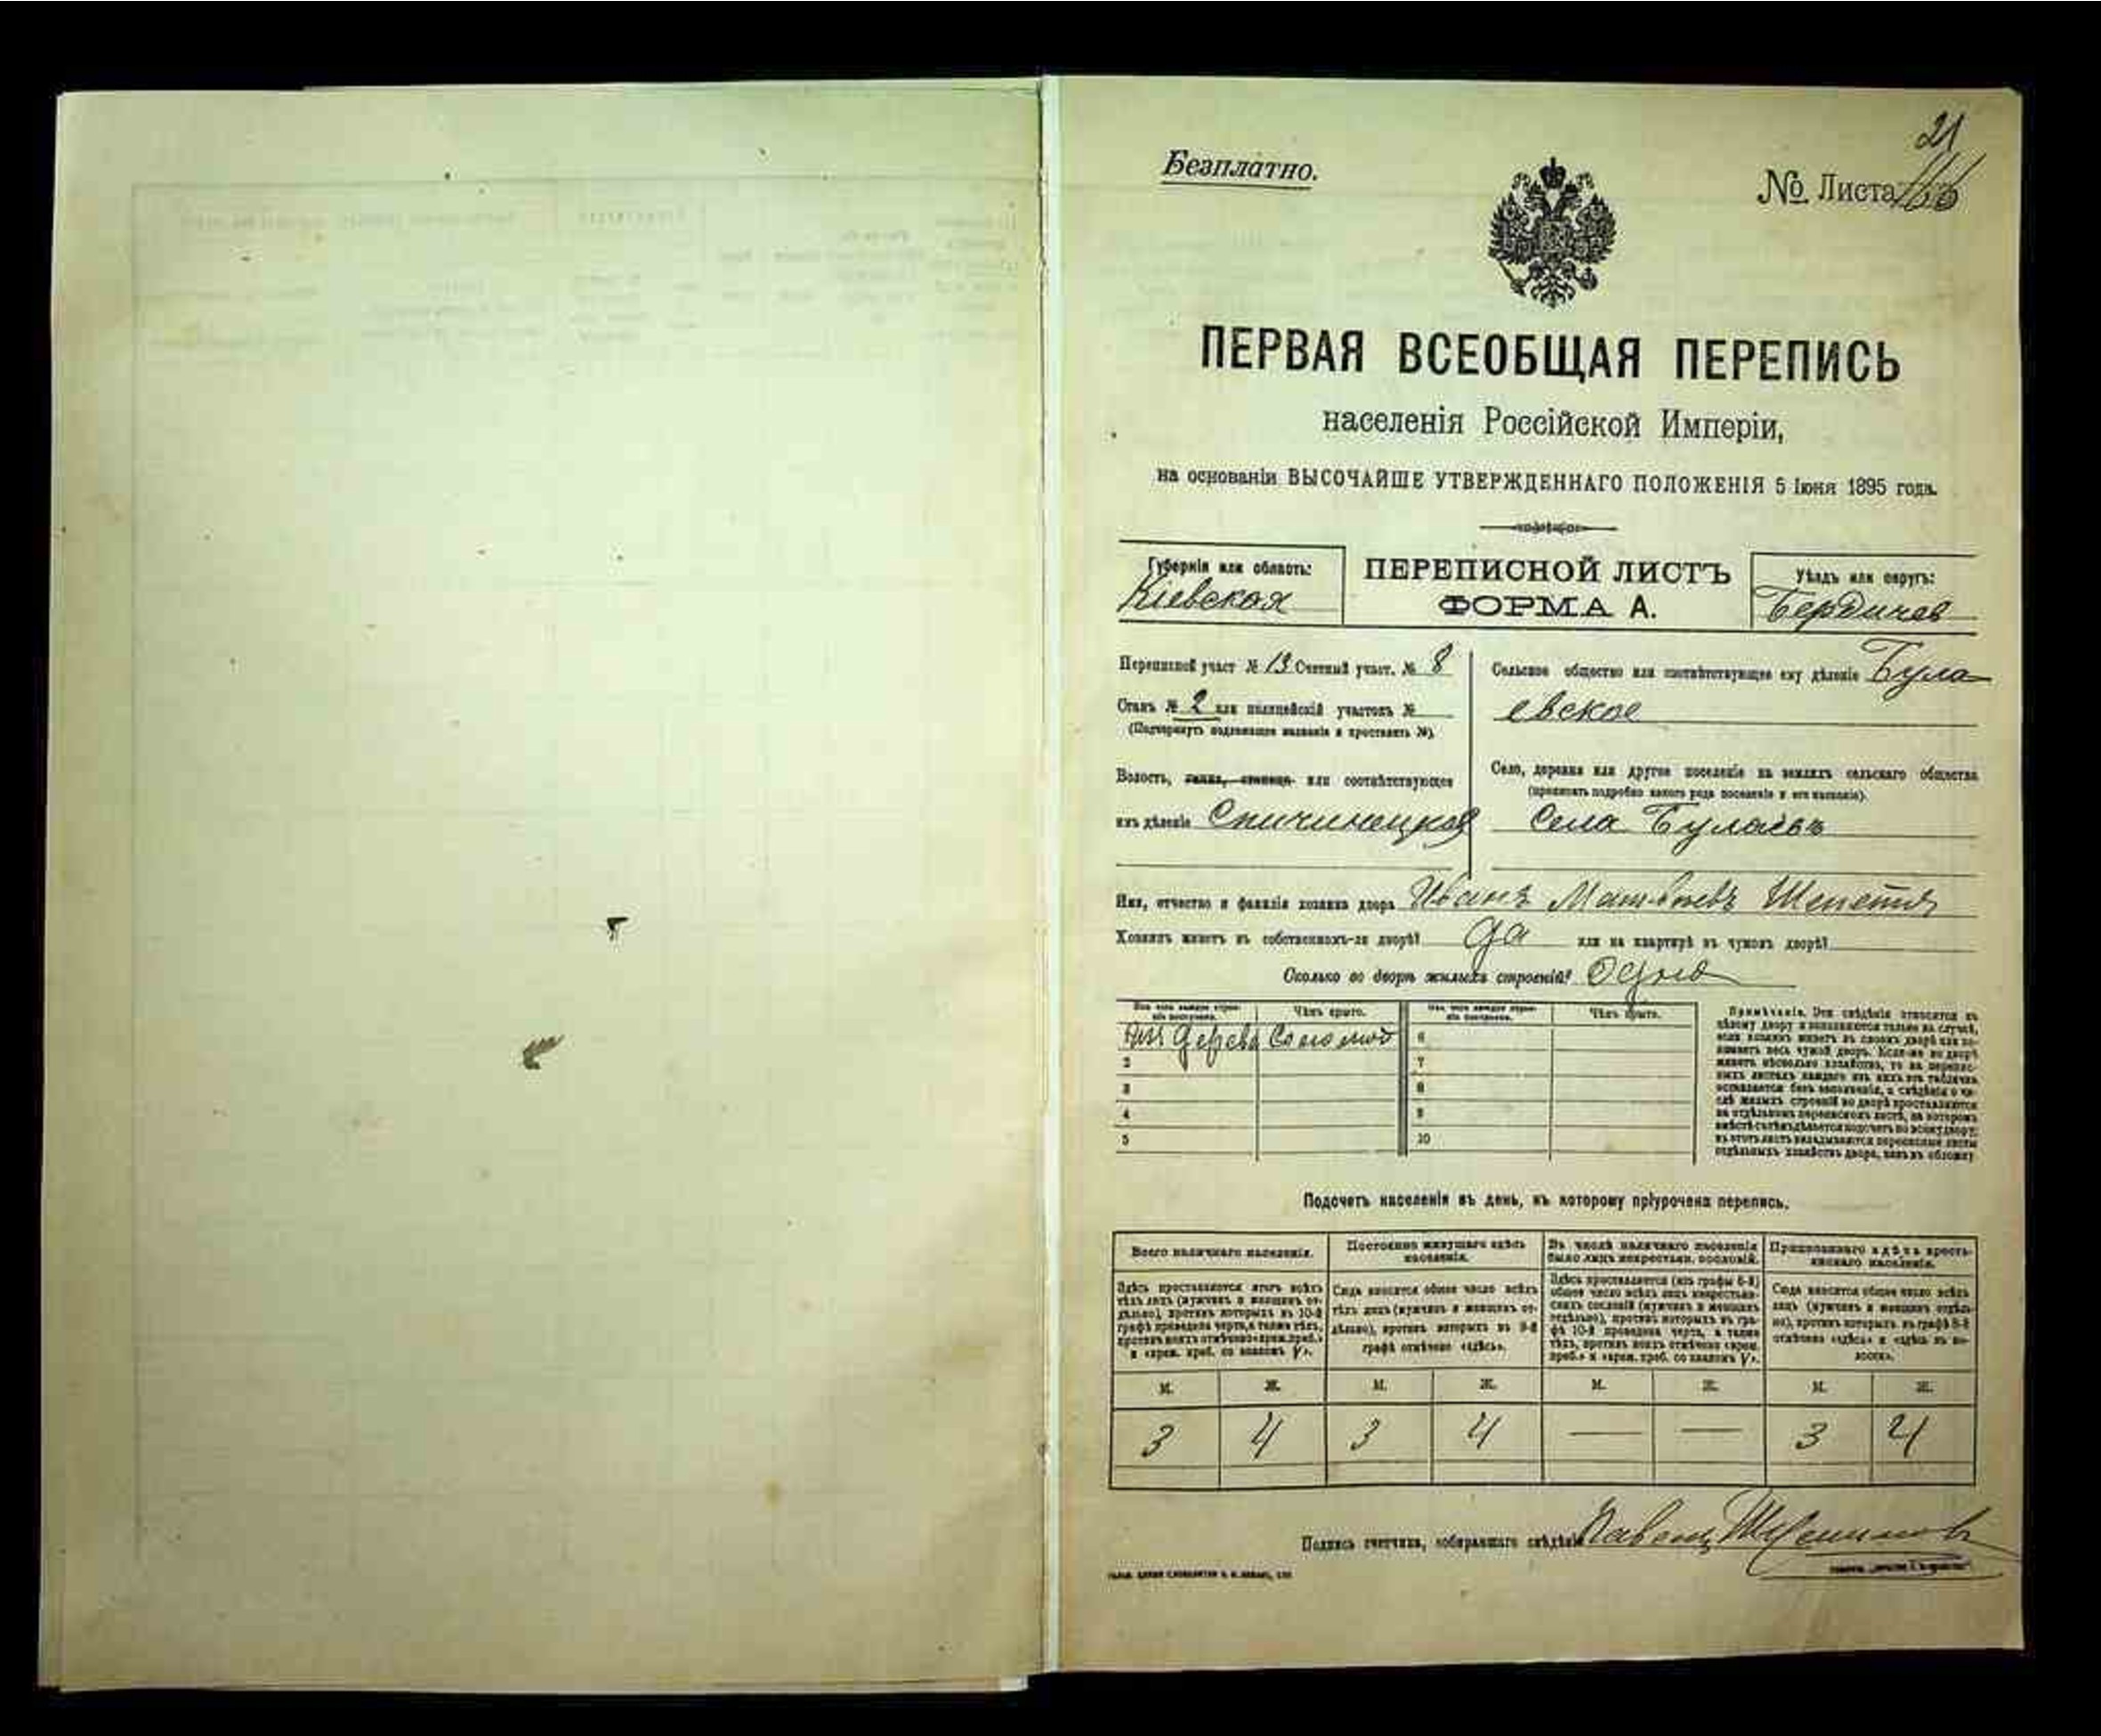 21
Безплатно.
№ Листа 166
ПЕРВАЯ ВСЕОБЩАЯ ПЕРЕПИСЬ
населенія Россійской Имперіи,
на основаніи ВЫСОЧАЙШЕ УТВЕРЖДЕННАГО ПОЛОЖЕНІЯ 5 Іюня 1895 года.
Губернія или область:
Кіевская
ПЕРЕПИСНОЙ ЛИСТЪ
ФОРМА А.
Уѣздъ или округъ:
Бердичев
Переписной участ № 13 Счетный участ. № 8
Станъ № 2 или полицейскій участокъ №
(Подчеркнуть подлежащее названіе и проставить №).
Волость, гмина, станица или соотвѣтствующее
имъ дѣленіе Спичинецкая
Сельское общество или соотвѣтствующее ему дѣленіе Була
евское
Село, деревня или другое поселеніе на земляхъ сельскаго общества
(прописать подробно какого рода поселеніе и его названіе).
Села Булаевъ
Имя, отчество и фамилія хозяина двора Иванъ Матвѣевъ
Хозяинъ живетъ въ собственномъ-ли дворѣ? да или на квартирѣ въ чужомъ дворѣ?
Сколько во дворѣ жилыхъ строеній? Одно
Изъ чего каждое строеніе построено.
Чѣмъ крыто.
Изъ чего каждое строеніе построено.
Чѣмъ крыто.
дерева Соломой 6
2 7
3 8
4 9
5 10
Примѣчаніе. Эти свѣдѣнія относятся къ
цѣлому двору и заполняются только въ случаѣ,
если хозяинъ живетъ въ своемъ дворѣ или занимаетъ
весь чужой дворъ. Если-же во дворѣ
живетъ нѣсколько хозяйствъ, то на переписныхъ
листахъ каждаго изъ нихъ эта табличка
оставляется безъ заполненія, а свѣдѣнія о числѣ
жилыхъ строеній во дворѣ проставляются
на отдѣльномъ переписномъ листѣ, на которомъ
вмѣстѣ съ тѣмъ дѣлается подсчетъ по всему двору;
въ этотъ листъ вкладываются переписные листы
отдѣльныхъ хозяйствъ двора, какъ въ обложку
Подсчетъ населенія въ день, къ которому пріурочена перепись.
Всего наличнаго населенія.
Постоянно живущаго здѣсь населенія.
Въ числѣ наличнаго населенія было лицъ некрестьян. сословій.
Приписаннаго здѣсь крестьянскаго населенія.
Здѣсь проставляется итогъ всѣхъ
тѣхъ лицъ (мужчинъ и женщинъ отдѣльно),
противъ которыхъ въ 10-й
графѣ проведена черта, а также тѣхъ,
противъ коихъ отмѣчено «врем. преб.»
и «врем. преб. со знакомъ V».
Сюда вносится общее число всѣхъ
тѣхъ лицъ (мужчинъ и женщинъ отдѣльно),
противъ которыхъ въ 9-й
графѣ отмѣчено «здѣсь».
Здѣсь проставляется (изъ графы 6-й)
общее число всѣхъ лицъ некрестьянскихъ
сословій (мужчинъ и женщинъ
отдѣльно), противъ которыхъ въ графѣ
10-й проведена черта, а также
тѣхъ, противъ коихъ отмѣчено «врем.
преб.» и «врем. преб. со знакомъ V».
Сюда вносится общее число всѣхъ
лицъ (мужчинъ и женщинъ отдѣльно),
противъ которыхъ въ графѣ 8-й
отмѣчено «здѣсь» и «здѣсь въ волости».
М. Ж. М. Ж. М. Ж. М. Ж.
3 4 3 4 — — 3 4
Подпись счетчика, собиравшаго свѣдѣнія